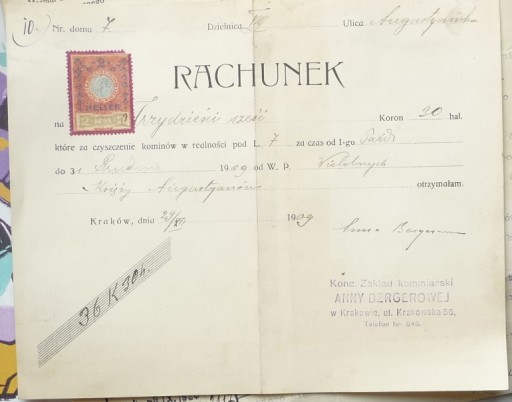 10.) Nr. domu 7 Dzielnica VIII Ulica Augustyańska
RACHUNEK
2 HELER 2
na Trzydzieści sześć Koron 30 hal.
które za czyszczenie kominów w realności pod L. 7 za czas od 1-go Paźdz
do 31 Grudnia 1909 od W. P. Wielebnych
Księży Augustyanów otrzymałam.
Kraków, dnia 29/XII 1909
Anna Berger
36 K 30 h.
Konc. Zakład kominiarski
ANNY BERGEROWEJ
w Krakowie, ul. Krakowska
Telefon Nr.